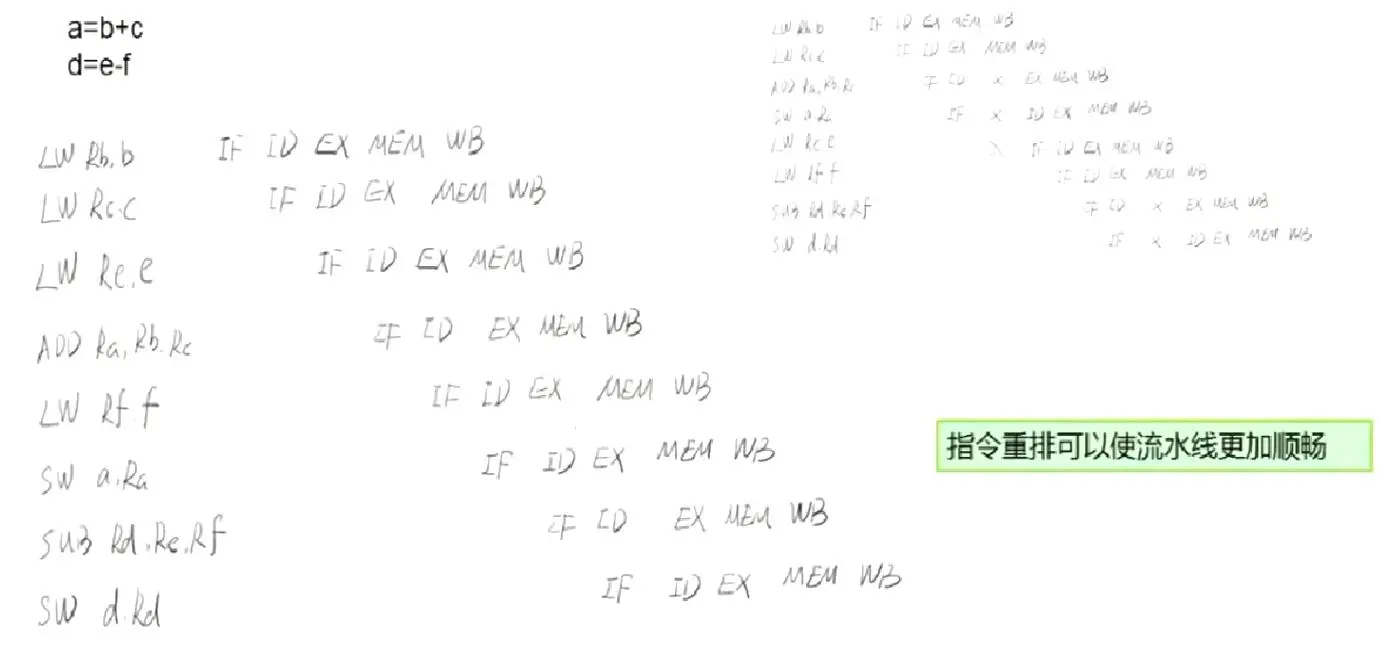 a=b+c
d=e-f
LW Rb,b IF ID EX MEM WB
LW Rc.c IF ID EX MEM WB
LW Re.e IF ID EX MEM WB
ADD Ra,Rb.Rc IF ID EX MEM WB
LW Rf.f IF ID EX MEM WB
SW a.Ra IF ID EX MEM WB
SUB Rd.Re.Rf IF ID EX MEM WB
SW d.Rd IF ID EX MEM WB
LW Rb.b IF ID EX MEM WB
LW Rc.c IF ID EX MEM WB
ADD Ra,Rb.Rc IF ID x EX MEM WB
SW a.Ra IF x ID EX MEM WB
LW Re.e x IF ID EX MEM WB
LW Rf.f IF ID EX MEM WB
SUB Rd.Re.Rf IF ID x EX MEM WB
SW d.Rd IF x ID EX MEM WB
指令重排可以使流水线更加顺畅